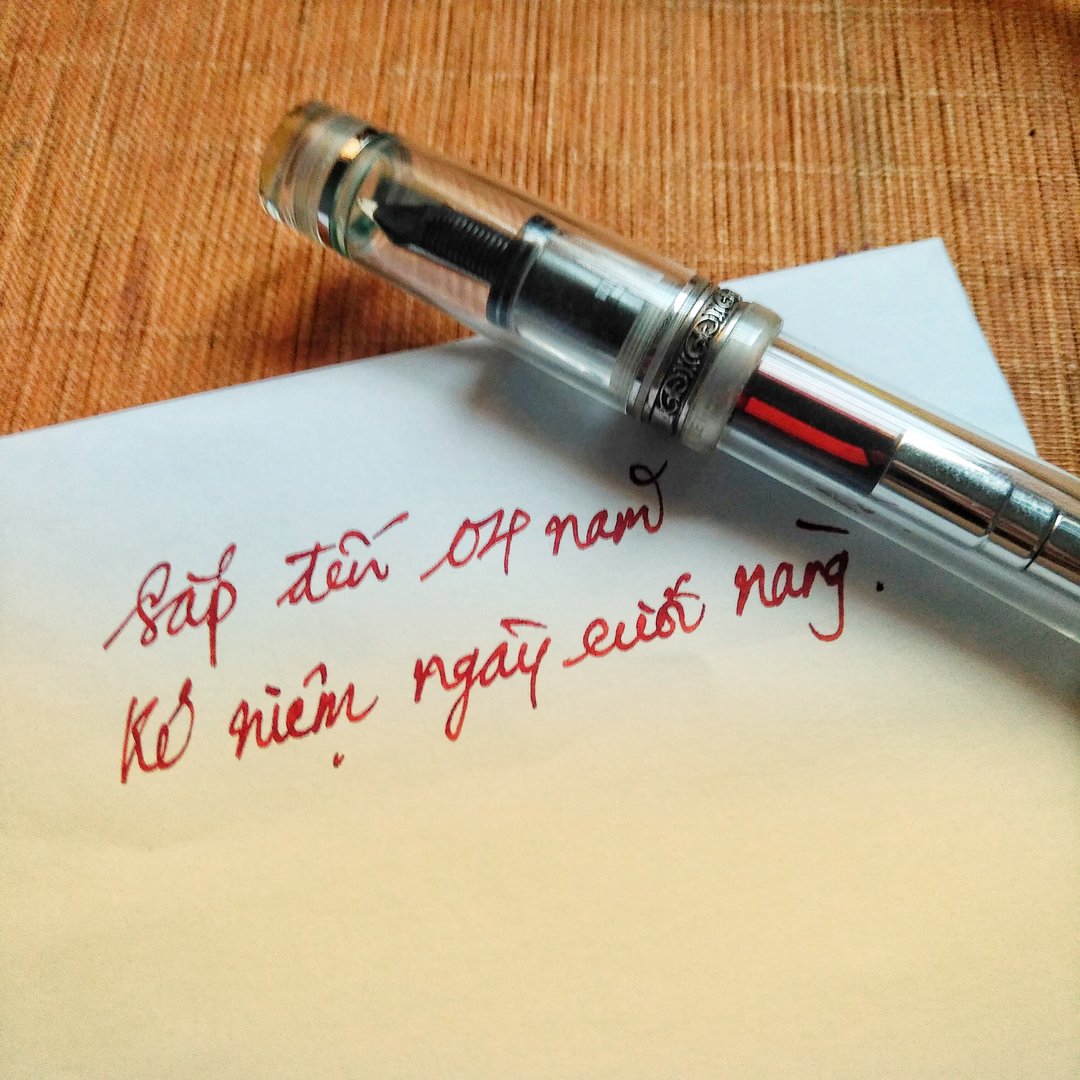 Sắp đến 04 năm
Kỷ niệm ngày cưới nàng.